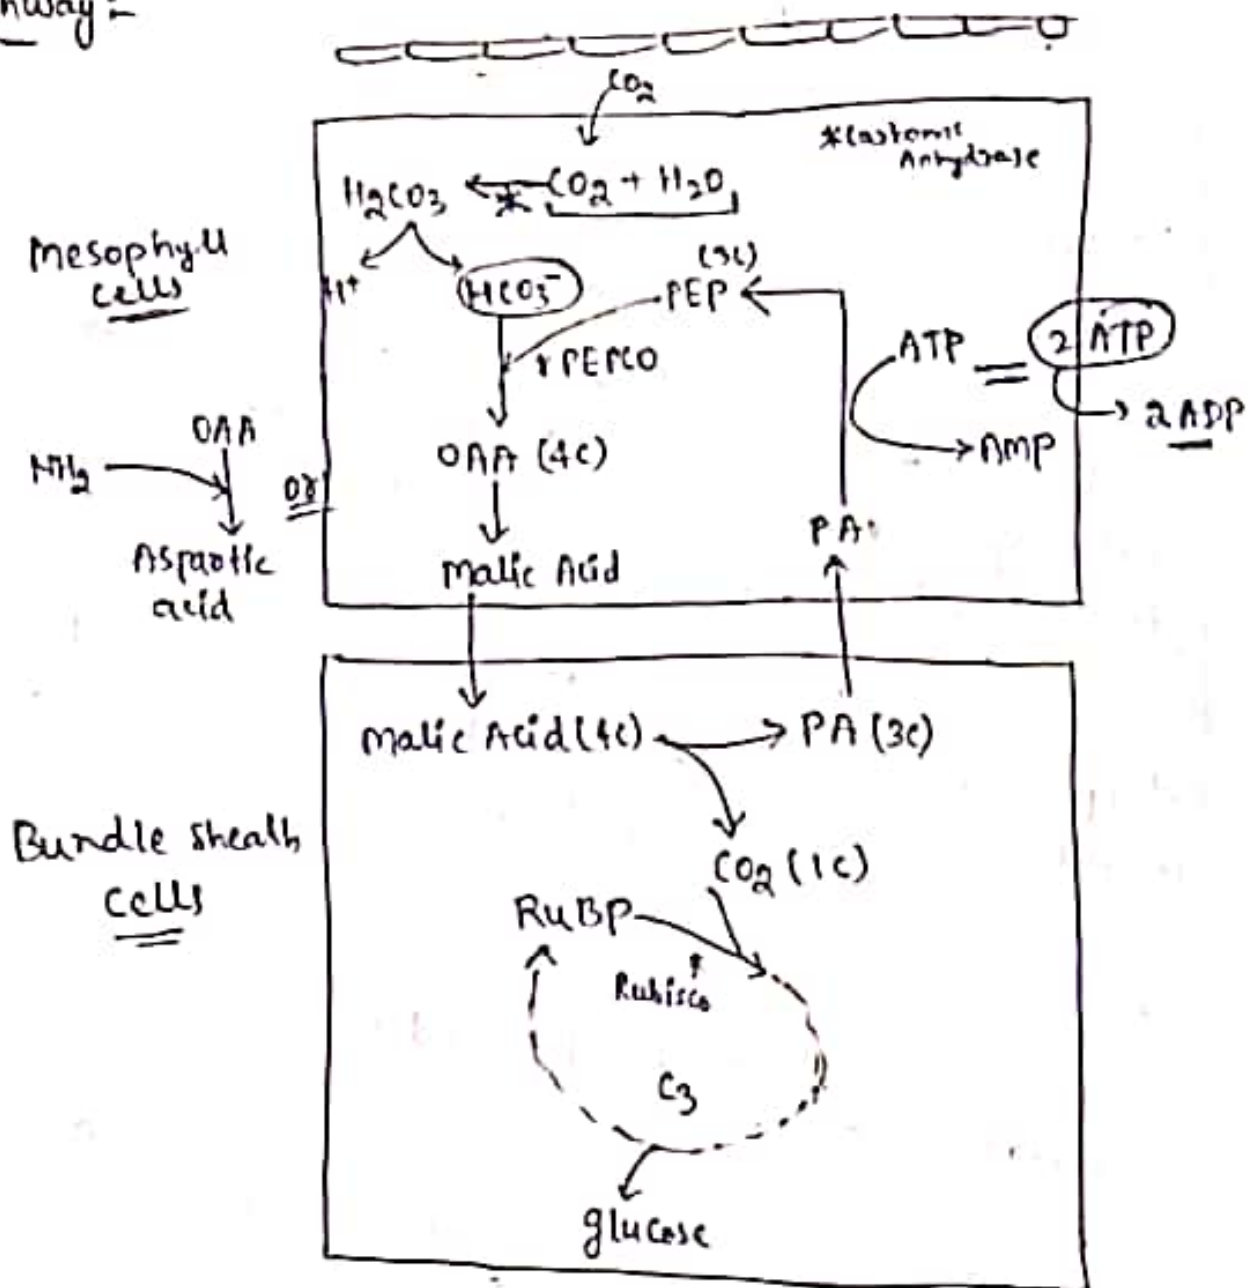 hway :-
CO2
*Carbonic
Anhydrase
H2CO3 ← * CO2 + H2O
Mesophyll
cells
H+
HCO3-
(3C)
PEP
ATP = 2 ATP
PEPCO
2 ADP
OAA
NH2
OAA (4C)
AMP
or
PA
Aspartic
acid
Malic Acid
Malic Acid (4C) → PA (3C)
Bundle sheath
cells
CO2 (1C)
RuBP
Rubisco
C3
glucose